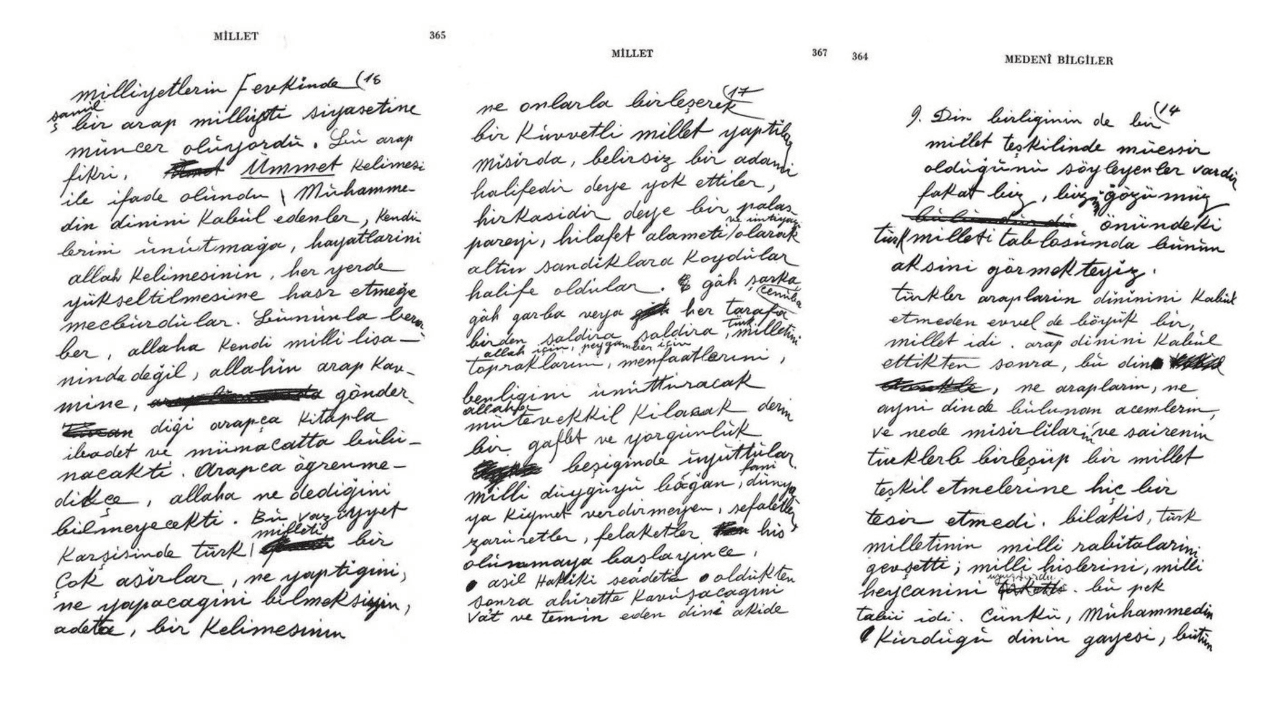 MİLLET
365
milliyetlerin fevkinde (16
şamil
bir arap milliyeti siyasetine
müncer olüyordü. Bü arap
fikri, Ümmet kelimesi
ile ifade olündü \ Mühamme-
din dinini kabül edenler, kendi
lerini ünütmağa, hayatlarini
allah kelimesinin, her yerde
yükseltilmesine hasr etmeğe
mecbürdülar. Bününla bera
ber, allaha kendi milli lisa-
ninda değil, allahin arap kav-
mine, gönder
diği arapça kitapla
ibadet ve münacatta bülü-
nacakti. Arapça öğrenme-
dikçe, allaha ne dediğini
bilmeyecekti. Bü vaziyyet
milleti
karşisinde türk bir
çok asirlar, ne yaptigini,
ne yapacagini bilmeksizin,
adeta, bir kelimesinin
MİLLET
367
ne onlarla birleşerek (17
bir küvvetli millet yaptilar
misirda, belirsiz bir adami
halifedir deye yok ettiler,
hirkasidir deye bir palas
ve imtiyazi
pareyi, hilafet alameti olarak
altin sandiklara koydülar
halife oldülar. gâh şarka
cenüba
gâh garba veya her tarafa
birden saldira saldira türk milletini
allah için, peygamber için
topraklarini, menfaatlerini,
benligini ünüttüracak
allaha
mütevekkil kilacak derin
bir gaflet ve yorgünlük
beşiginde üyüttülar
fani
milli düygüyü boğan, dünya
ya kiymet verdirmeyen, sefaletler
zarüretler, felaketler his
olünmaya başlayınce,
asil Hakiki seadete oldükten
sonra ahirette kavüşacagini
vât ve temin eden dinî akide
364
MEDENİ BİLGİLER
9. Din birliginin de bir (14
millet teşkilinde müessir
oldüğünü söyleyenler vardir
fakat biz, bizi gözümüz
önündeki
türk milleti tablosünda bünün
aksini görmekteyiz.
türkler araplarin dininini kabül
etmeden evvel de böyük bir,
millet idi. arap dinini kabül
ettikten sonra, bü din
, ne araplarin, ne
ayni dinde bülünan acemlerin,
ve nede misirlilarin ve sairenin
türklerle birleşüp bir millet
teşkil etmelerine hiç bir
tesir etmedi. bilakis, türk
milletinin milli rabitalarini
gevşetti; milli hislerini, milli
uyuşturdu
heycanini bü pek
tabii idi. Çünkü, Mühammedin
kürdügü dinin gayesi, bütün